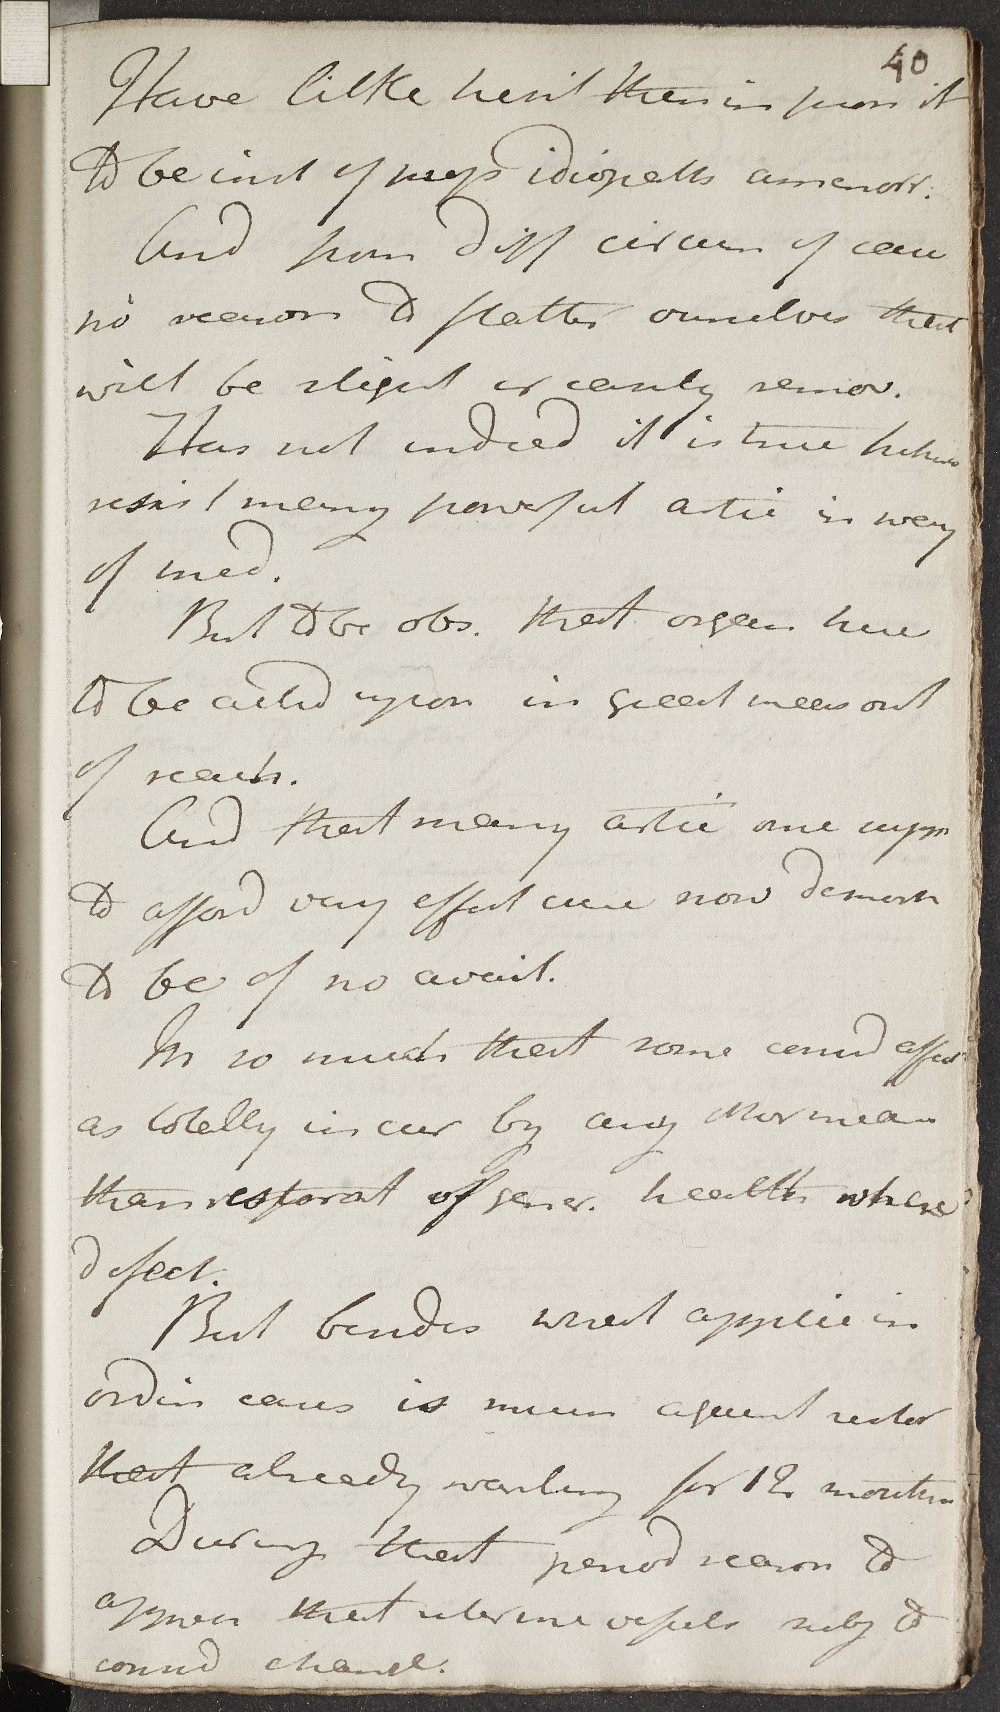 40
Have little hesit then in pron it
to be inst of idiopath amenorr.
And from diff circum of case
no reason to flatter ourselves that
will be slight or easily remov.
Has not indeed it is true hitherto
resist many powerful artic in way
of med.
But to be obs. that organ here
to be acted upon in great meas out
of reach.
And that many artic one supp
to afford very effect cure now demon
to be of no avail.
In so much that some consid affect
as totally incur by any other mean
than restorat of gener. health where
defect.
But besides what applic in
ordin cases is mum against restor
that already wanting for 12 months
During that period reason to
apprer that uterine vessels subj to
consid change.